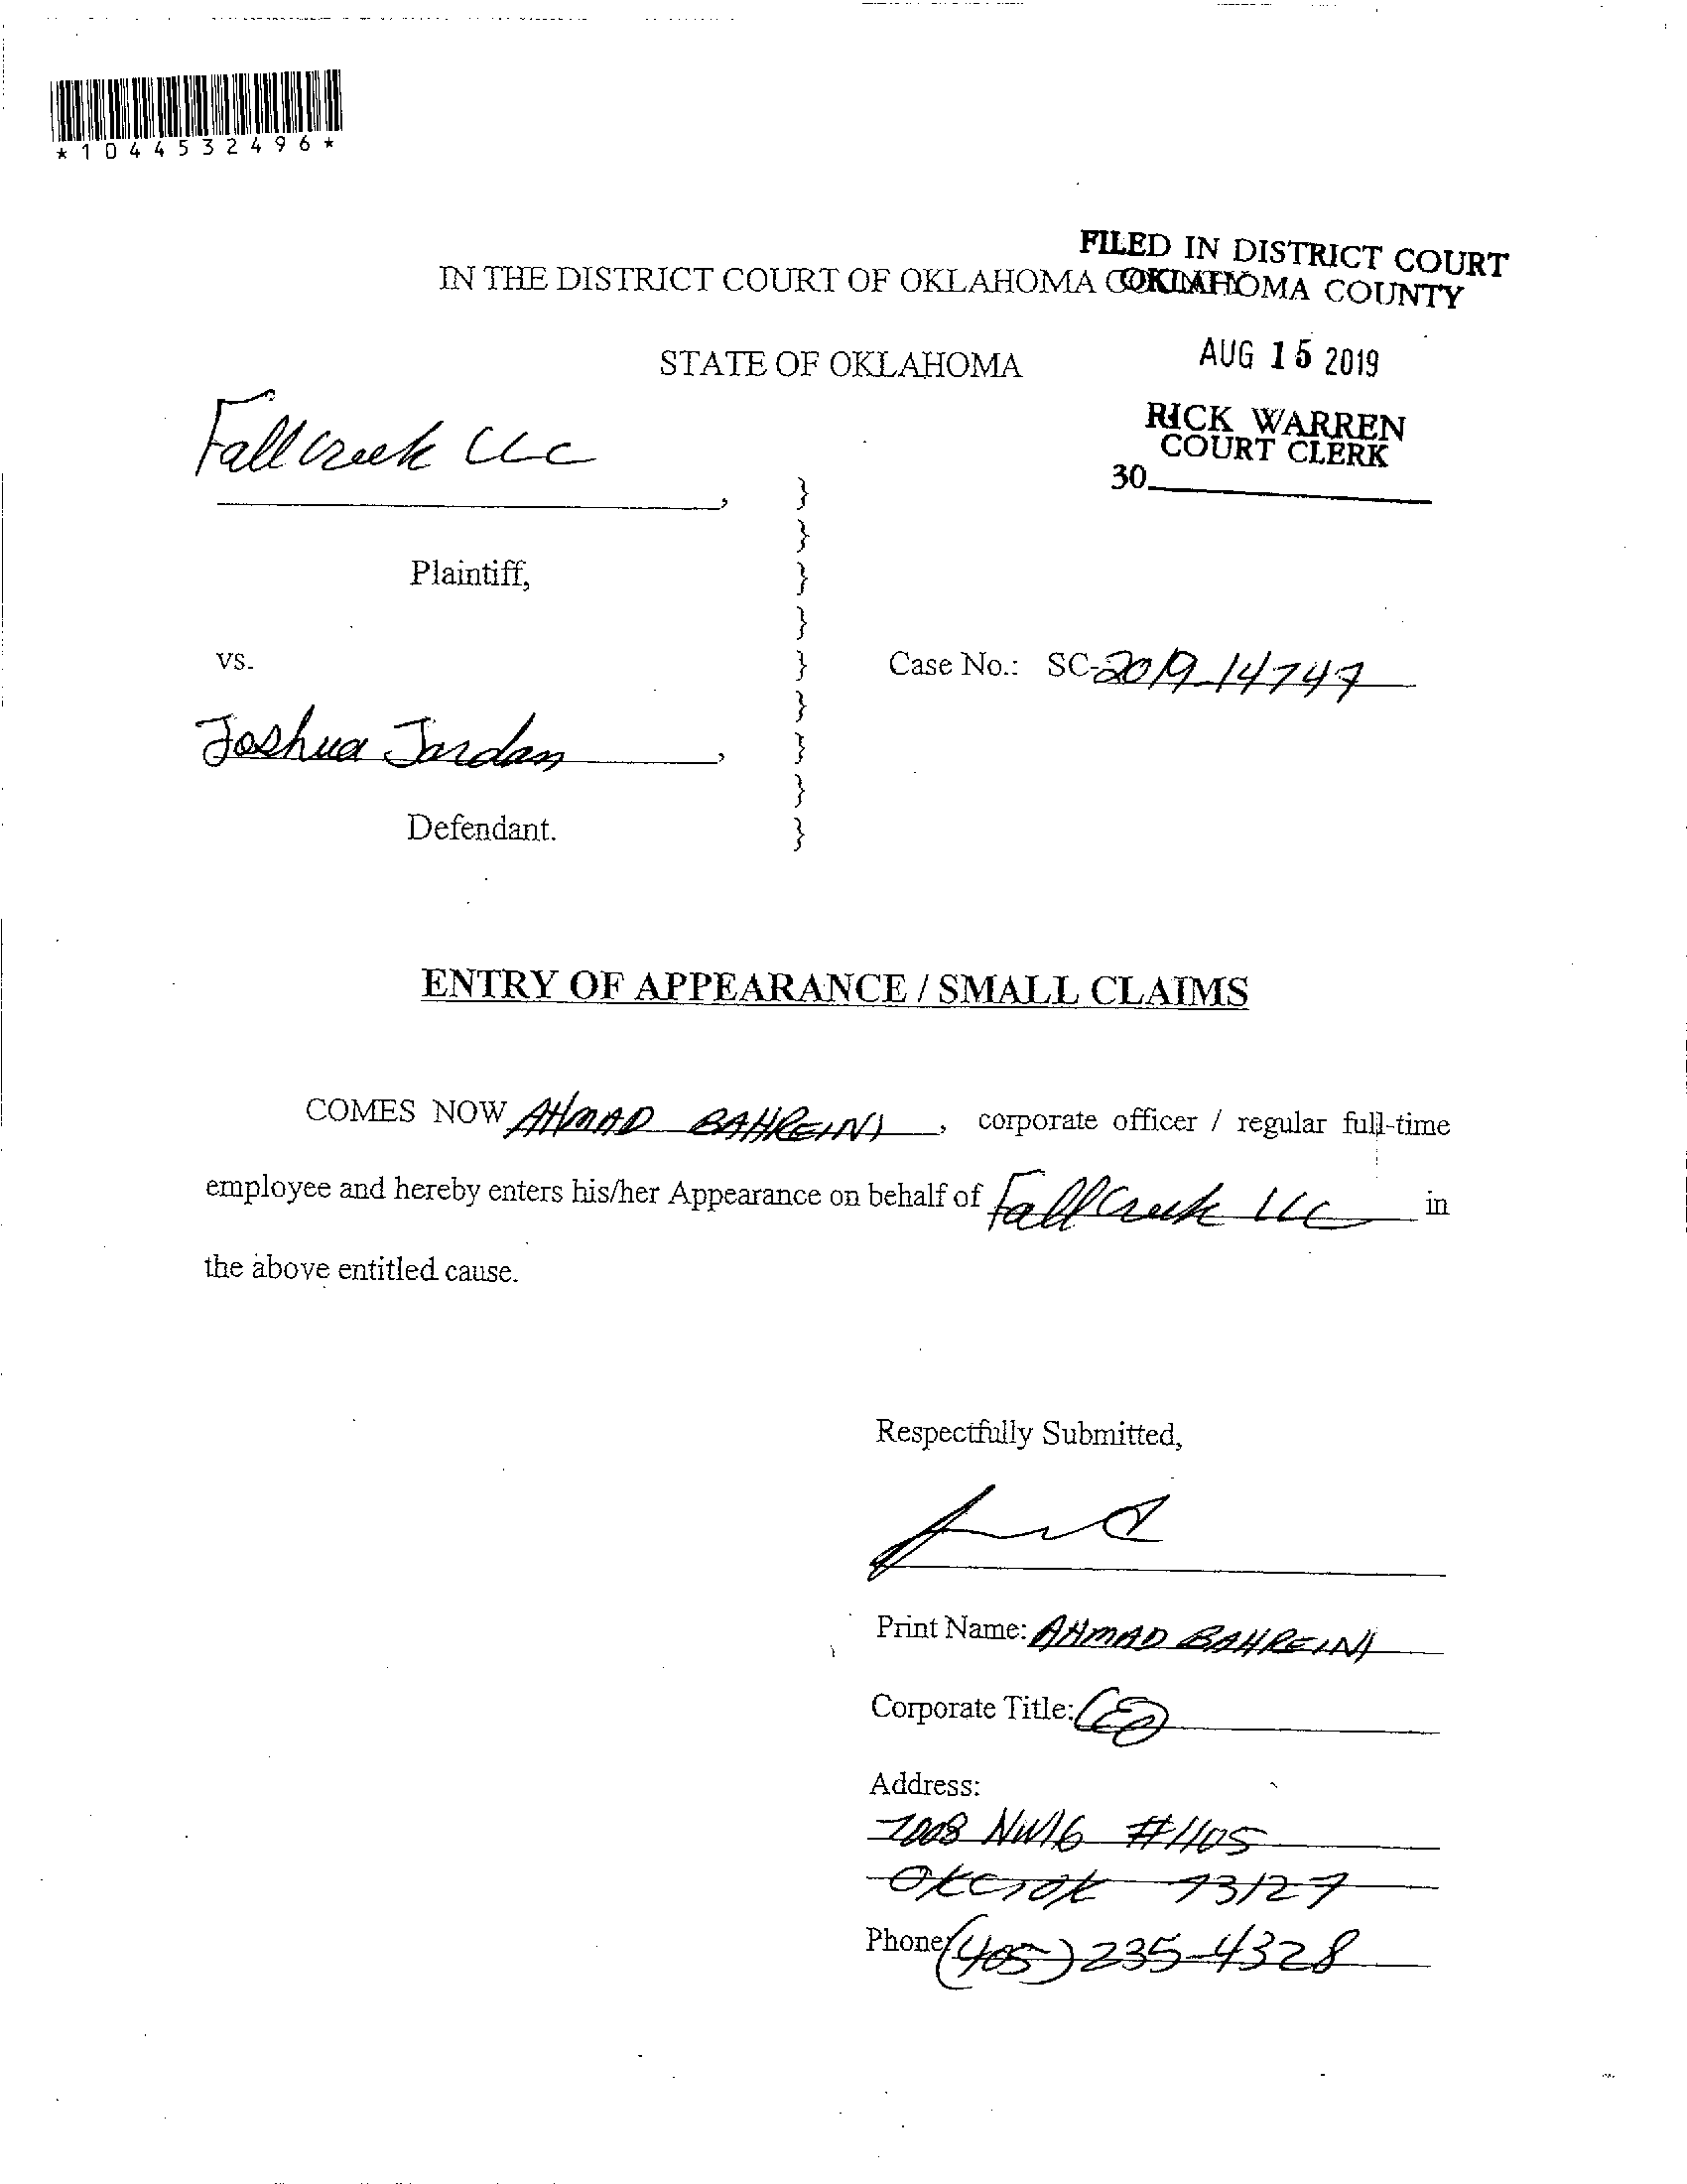 *1044532496*
FILED IN DISTRICT COURT
OKLAHOMA COUNTY
IN THE DISTRICT COURT OF OKLAHOMA COUNTY
STATE OF OKLAHOMA
AUG 15 2019
RICK WARREN
COURT CLERK
30
Fallcreek LLC,
Plaintiff,
vs.
Case No.: SC-2019-14747
Joshua Jordan,
Defendant.
ENTRY OF APPEARANCE / SMALL CLAIMS
COMES NOW AHMAD BAHREINI, corporate officer / regular full-time
employee and hereby enters his/her Appearance on behalf of FallCreek LLC in
the above entitled cause.
Respectfully Submitted,
Print Name: AHMAD BAHREINI
Corporate Title: CEO
Address:
7008 NW16 #1105
OKC, OK 73127
Phone: (405) 235-4328